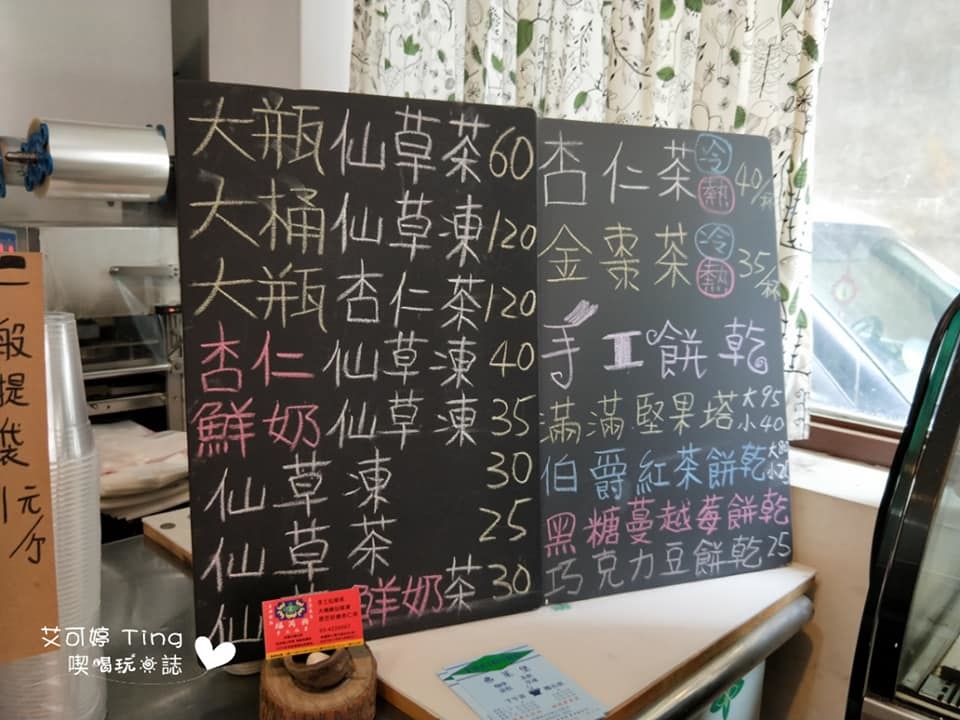 大瓶仙草茶60
大桶仙草凍120
大瓶杏仁茶120
杏仁仙草凍40
鮮奶仙草凍35
仙草凍 30
仙草茶 25
仙 鮮奶茶30
杏仁茶 冷 熱 40/杯
金棗茶 冷 熱 35/杯
手工餅乾
滿滿堅果塔 大95 小40
伯爵紅茶餅乾
黑糖蔓越莓餅乾
巧克力豆餅乾25
一般提袋
1元/
艾可婷 Ting
喫喝玩 誌